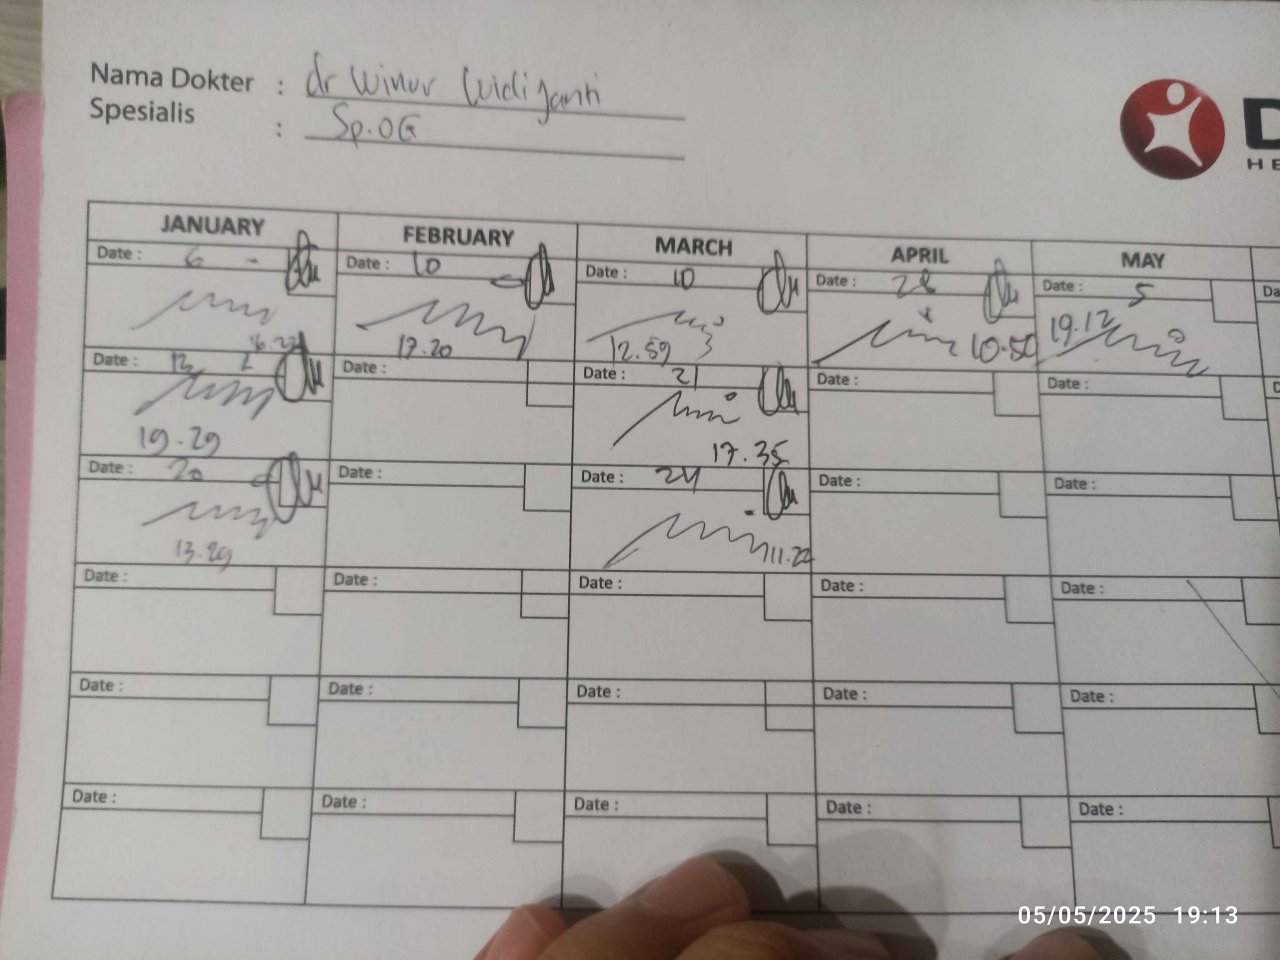 Nama Dokter : dr Winur Widijanti
Spesialis : Sp.OG
D
HE
JANUARY FEBRUARY MARCH APRIL MAY
Date : 6 Date : 10 Date : 10 Date : 28 Date : 5 Da
17.20 12.59 10.50 19.12
Date : Date : Date : 21 Date : Date : D
19.29 17.35
Date : 20 Date : Date : 24 Date : Date :
13.29 11.22
Date : Date : Date : Date : Date :
Date : Date : Date : Date : Date :
Date : Date : Date : Date : Date :
05/05/2025 19:13